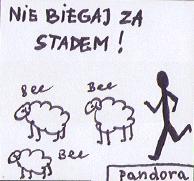 NIE BIEGAJ ZA
STADEM!
Bee
Bee
Bee
pandora